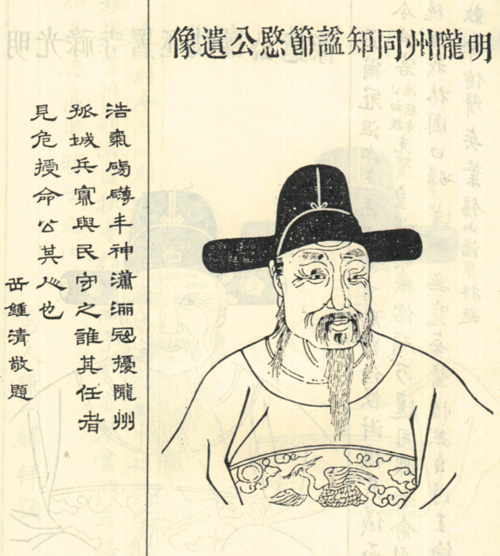 明隴州同知謚節愍公遺像
浩氣磅礴丰神瀟灑寇擾隴州
孤城兵寡與民守之誰其任者
見危授命公其人也
岳鍾清敬題